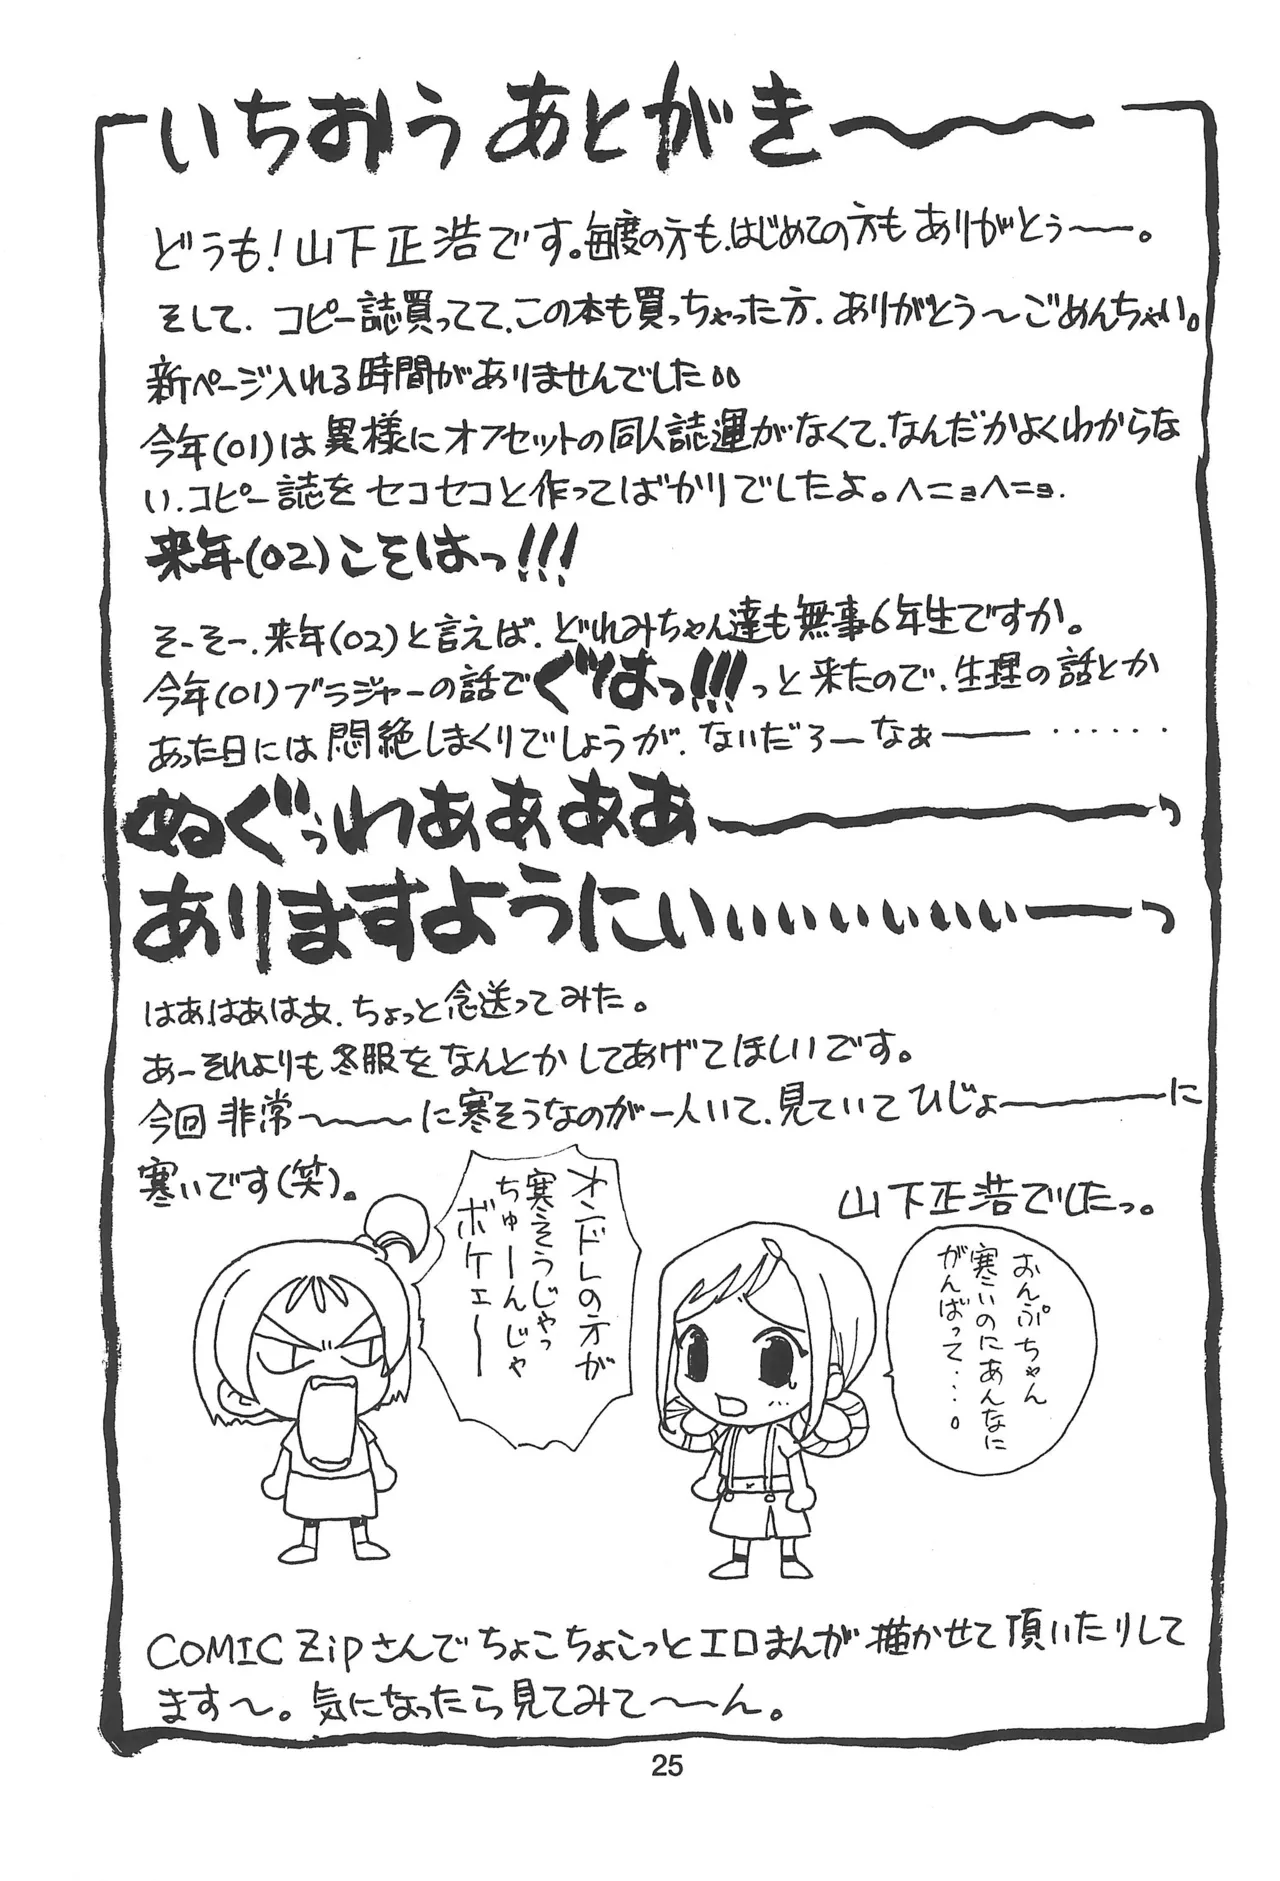 いちおう あとがき〜〜〜
どうも!山下正浩です。毎度の方も、はじめての方も ありがとぅー。
そして、コピー誌買ってて、この本も買っちゃった方、ありがとう〜ごめんちゃい。
新ページ入れる時間がありませんでした。。
今年(01)は異様にオフセットの同人誌運がなくて、なんだかよくわからな
い、コピー誌をセコセコと作ってばかりでしたよ。ヘニョヘニョ.
来年(02)こそはっ!!!
そーそー、来年(02)と言えば、どれみちゃん達も無事6年生ですか。
今年(01)ブラジャーの話でぐはっ!!!っと来たので、生理の話とか
あった日には悶絶しまくりでしょうが、ないだろーなぁー‥‥‥
ぬぐぅわぁぁぁぁーーーっ
ありますようにぃぃぃぃぃぃぃぃーっ
はあはあはあ、ちょっと念送ってみた。
あーそれよりも冬服をなんとかしてあげてほしいです。
今回 非常〜〜〜に寒そうなのが一人いて、見ていてひじょーーーに
寒いです(笑)。
山下正浩でしたっ。
オンドレの方が
寒そうじゃっ
ちゅーんじゃ
ボケェー
おんぷちゃん
寒いのにあんなに
がんばって…。
COMIC Zipさんでちょこちょこっとエロまんが描かせて頂いたりして
ます〜。気になったら見てみて〜ん。
25